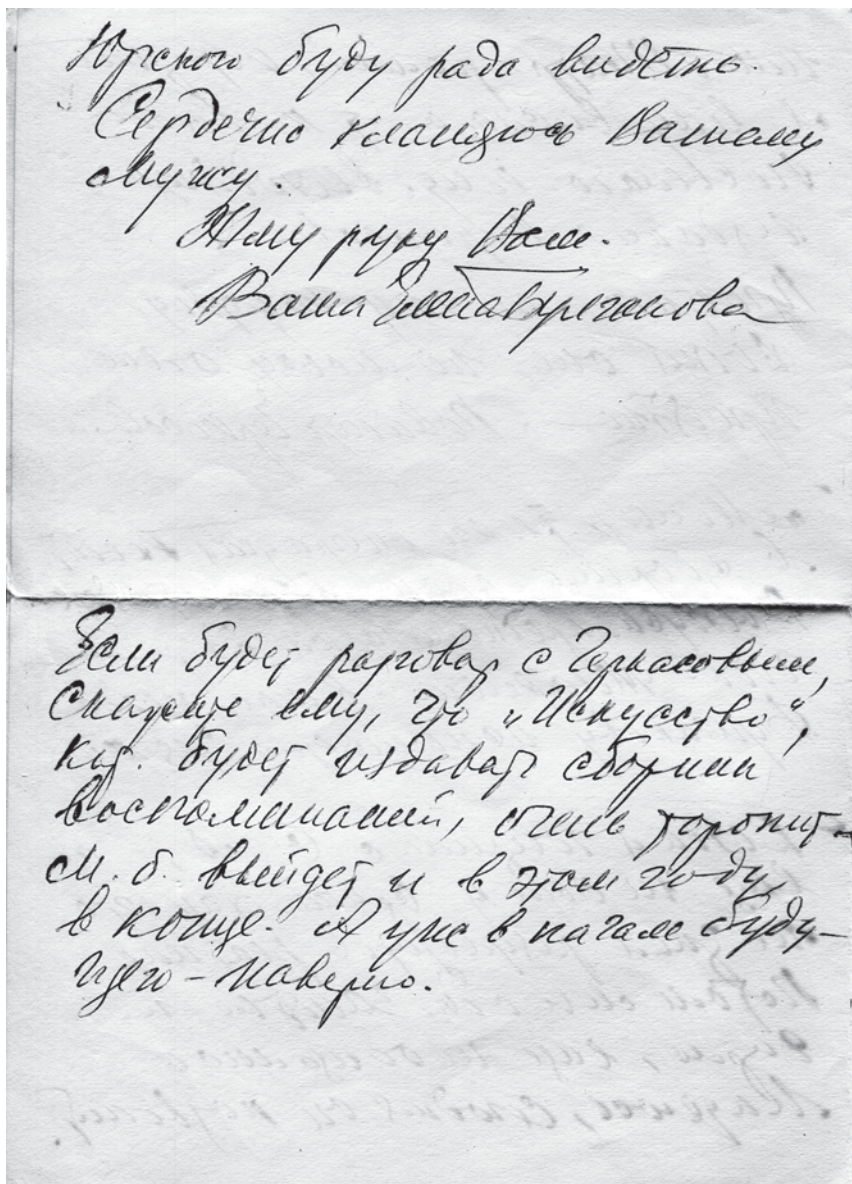 Юрского буду рада видеть.
Сердечно кланяюсь Вашему
мужу.
Жму руку Вам.
Ваша Елена Булгакова
Если будет разговор с Черкасовым,
скажите ему, что „Искусство“,
кот. будет издавать сборник
воспоминаний, очень торопит.
М. б. выйдет и в этом году,
в конце. А уже в начале буду-
щего – наверно.